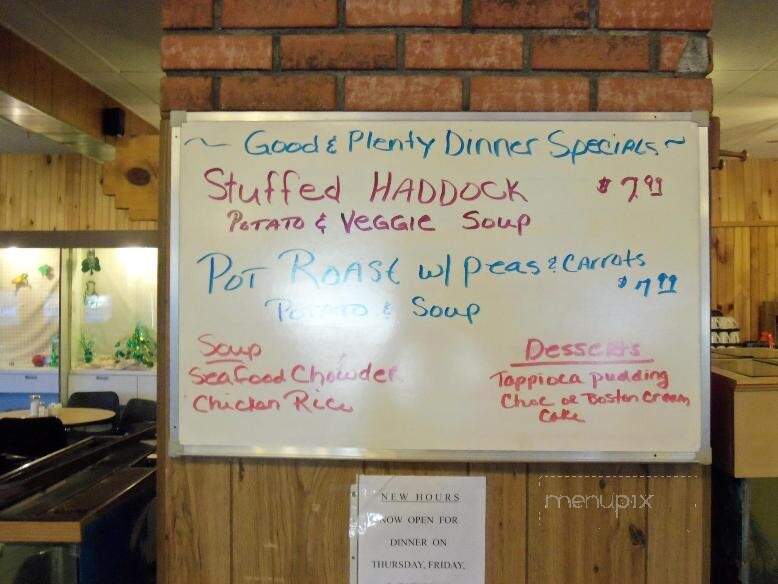 ~ Good & Plenty Dinner Specials ~
Stuffed HADDOCK $7.99
POTATO & VEGGIE Soup
POT ROAST w/ Peas & CARROTS
$7.99
POTATO & Soup
Soup
Seafood Chowder
Chicken Rice
Desserts
Tappioca pudding
Choc or Boston Cream
Cake
NEW HOURS
NOW OPEN FOR
DINNER ON
THURSDAY, FRIDAY,
menupix